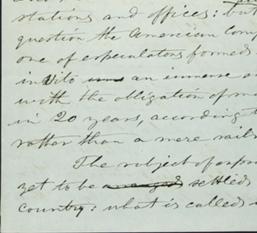 stations and offices: but
question the American Com
one of speculators formed
invite an immense
with the obligation of
in 20 years, according t
rather than a mere rail
The subject of
yet to be arranged settled
country: what is called